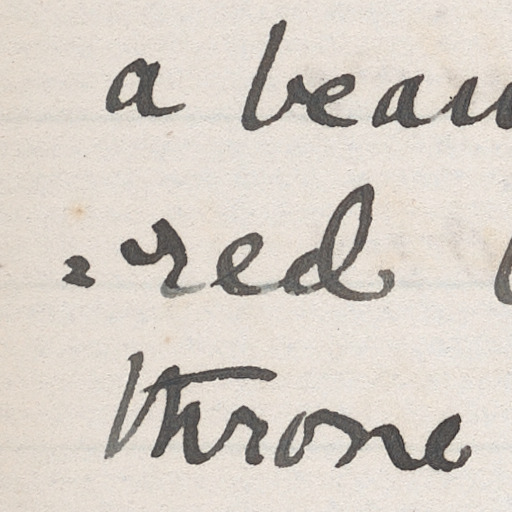 a beau
=red
throne